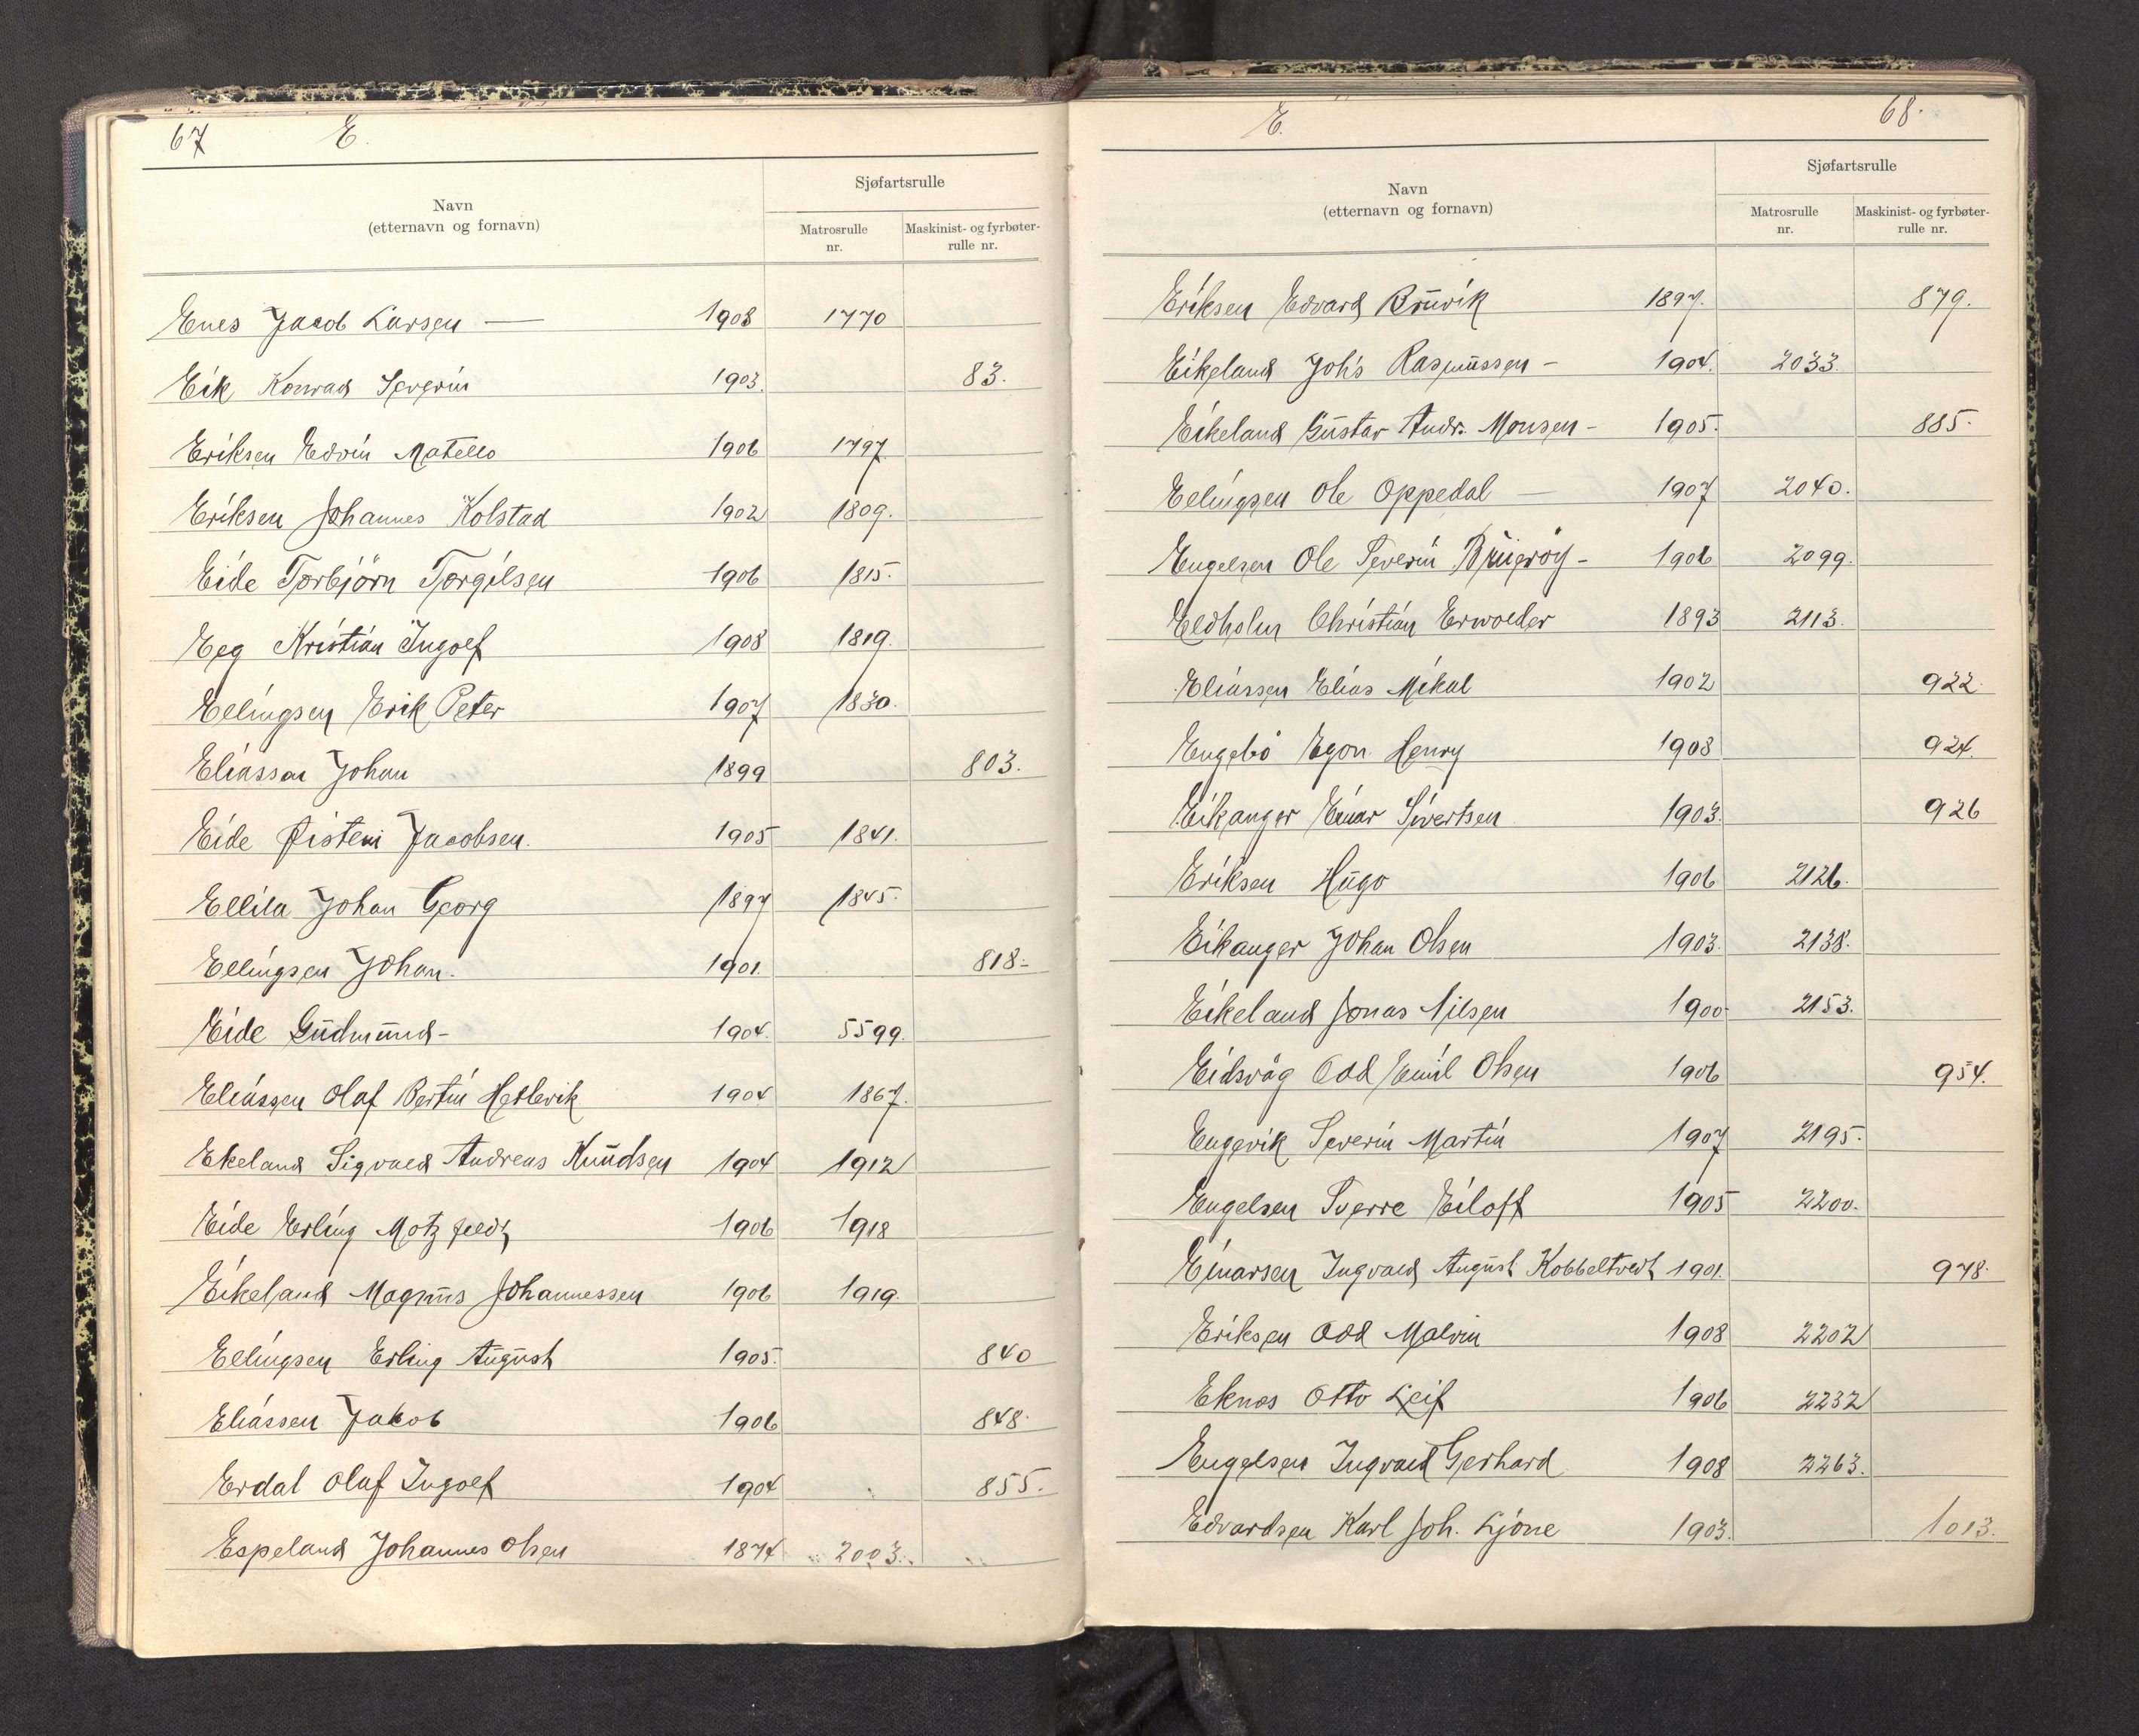 67 E.
Navn
(etternavn og fornavn)
Sjøfartsrulle
Matrosrulle
nr.
Maskinist- og fyrbøter-
rulle nr.
Enes Jacob Larsen — 1908 1770
Eik Konrad Severin 1903. 83.
Eriksen Edvin Matello 1906 1797
Eriksen Johannes Kolstad 1902 1809.
Eide Torbjörn Torgilsen 1906 1815.
Eeg Kristian Ingolf 1908 1819.
Ellingsen Erik Peter 1907 1830.
Eliassen Johan 1899 803.
Eide Øistein Jacobsen. 1905 1841.
Ellila Johan Georg 1897 1845.
Ellingsen Johan. 1901. 818-
Eide Gudmund- 1904. 5599.
Eliassen Olaf Bertin Hetlevik 1904 1867.
Ekeland Sigvald Andreas Knudsen 1904 1912
Eide Erling Motzfeldt 1906 1918
Eikeland Magnus Johannessen 1906 1919.
Ellingsen Erling August 1905. 840
Eliassen Jakob 1906 848.
Erdal Olaf Ingolf 1904 855.
Espeland Johannes Olsen 1874 2003.
E. 68.
Navn
(etternavn og fornavn)
Sjøfartsrulle
Matrosrulle
nr.
Maskinist- og fyrbøter-
rulle nr.
Eriksen Edvard Bruvik 1897. 879.
Eikeland Johs Rasmussen - 1904. 2033.
Eikeland Gustav Andr. Monsen - 1905. 885.
Ellingsen Ole Oppedal — 1907 2040.
Engelsen Ole Severin - 1906 2099.
Eldholm Christian 1893 2113.
Eliassen Elias Mikal 1902 922.
Engebö Egon Henry 1908 924.
Eikanger Einar Sivertsen 1903. 926
Eriksen Hugo 1906 2126.
Eikanger Johan Olsen 1903. 2138.
Eikeland Jonas Nilsen 1900 2153.
Eidsvåg Odd Emil Olsen 1906 954.
Engevik Severin Martin 1907 2195.
Engelsen Sverre Eiloff 1905 2200.
Einarsen Ingvald August Kobbeltvedt 1901. 978.
Eriksen Odd Malvin 1908 2202
Eknes Otto Leif 1906 2232
Engelsen Ingvald Gerhard 1908 2263.
Edvardsen Karl Joh. Ljöne 1903. 1013.